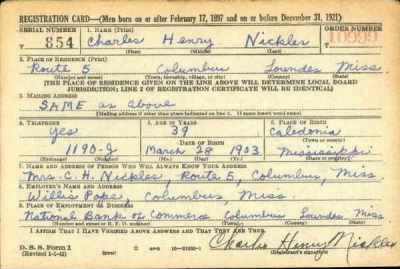 REGISTRATION CARD—(Men born on or after February 17, 1897 and on or before December 31, 1921)
SERIAL NUMBER 1. NAME (Print) ORDER NUMBER
T 854 Charles Henry Nickles 10999
(First) (Middle) (Last)
2. PLACE OF RESIDENCE (Print)
Route 5 Columbus Lowndes Miss
(Number and street) (Town, township, village, or city) (County) (State)
[THE PLACE OF RESIDENCE GIVEN ON THE LINE ABOVE WILL DETERMINE LOCAL BOARD
JURISDICTION; LINE 2 OF REGISTRATION CERTIFICATE WILL BE IDENTICAL]
3. MAILING ADDRESS
SAME as above
[Mailing address if other than place indicated on line 2. If same insert word same]
4. TELEPHONE 5. AGE IN YEARS 6. PLACE OF BIRTH
Yes 39 Caledonia
DATE OF BIRTH (Town or county)
1190-J March 28 1903 Mississippi
(Exchange) (Number) (Mo.) (Day) (Yr.) (State or country)
7. NAME AND ADDRESS OF PERSON WHO WILL ALWAYS KNOW YOUR ADDRESS
Mrs. C. H. Nickles, Route 5, Columbus, Miss.
8. EMPLOYER'S NAME AND ADDRESS
Willis Pope, Columbus, Miss.
9. PLACE OF EMPLOYMENT OR BUSINESS
National Bank of Commerce Columbus Lowndes Miss
(Number and street or R. F. D. number) (Town) (County) (State)
I AFFIRM THAT I HAVE VERIFIED ABOVE ANSWERS AND THAT THEY ARE TRUE.
D. S. S. Form 1
(Revised 1-1-42) (over) Charles Henry Nickles